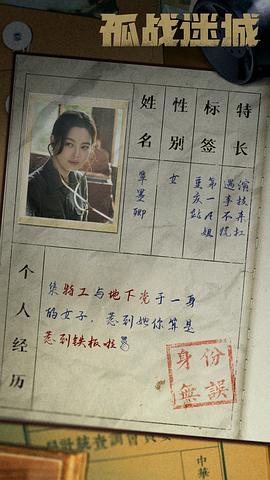 孤战迷城
姓名
性别
标签
特长
覃墨卿
女
重庆站
第一A姐
遇事不慌
演技来扛
个人经历
集特工与地下党于一身
的女子，惹到她你算是
惹到铁板啦
身份
無誤
中華